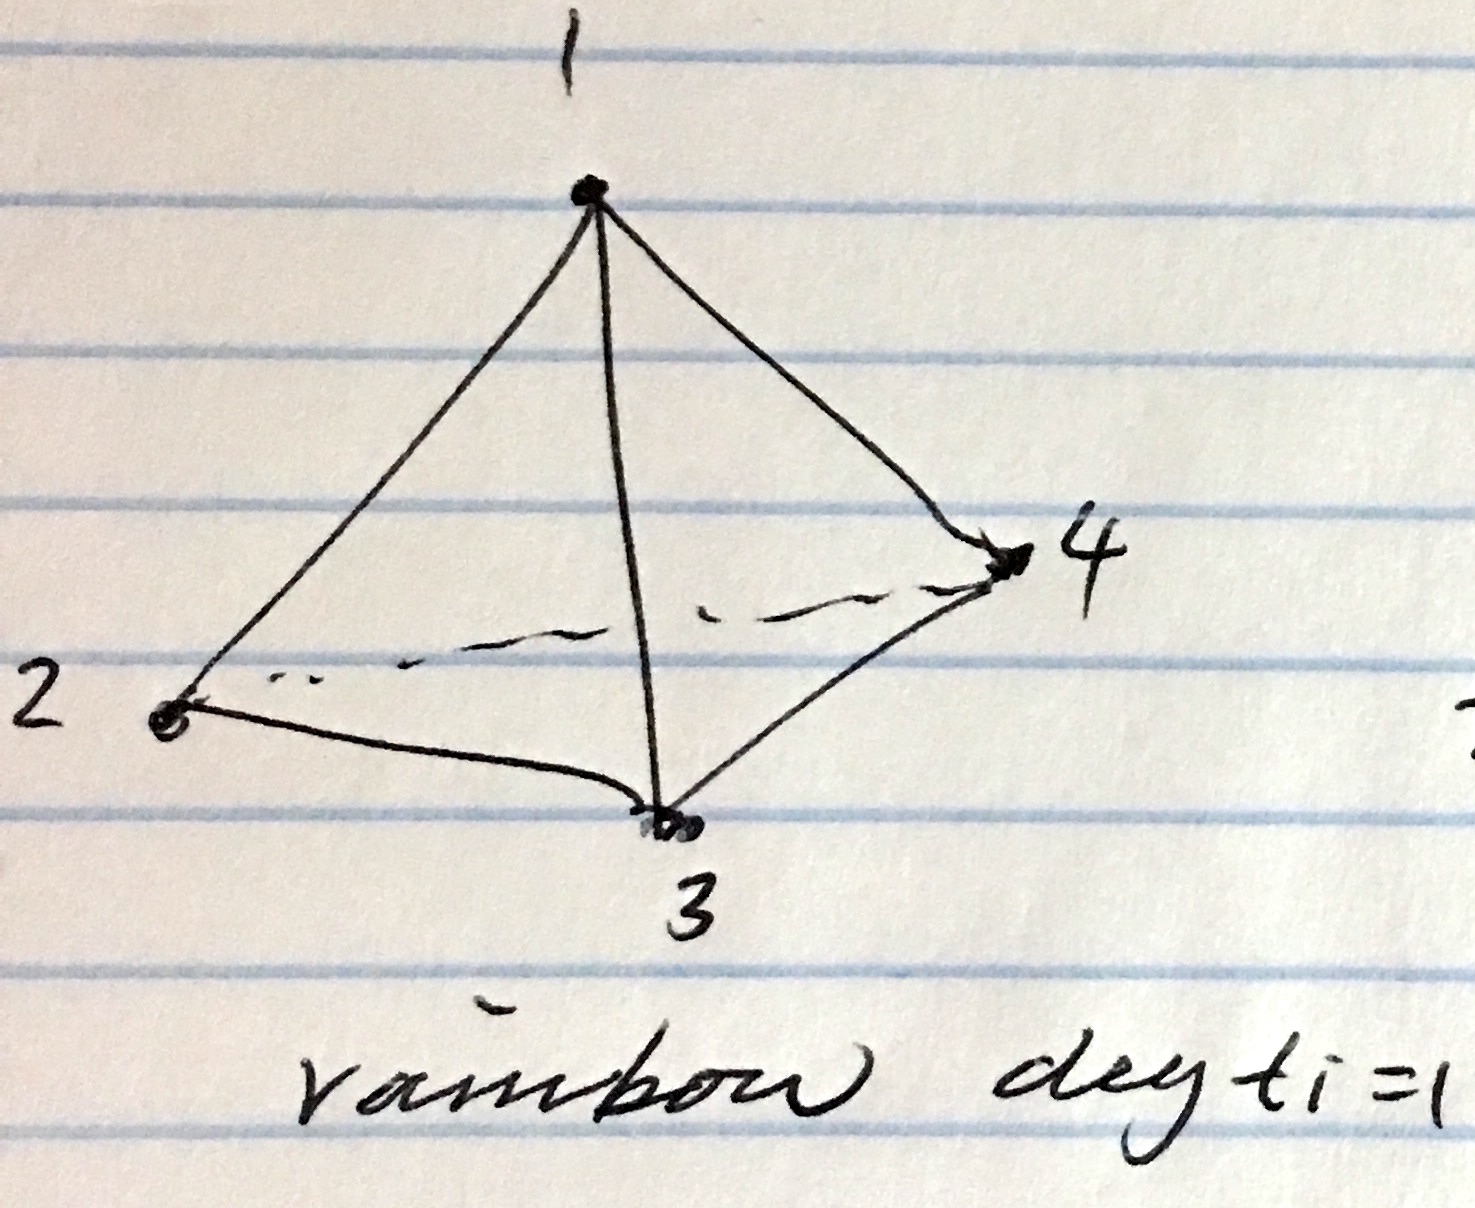 1
4
2
3
rainbow deg ti=1